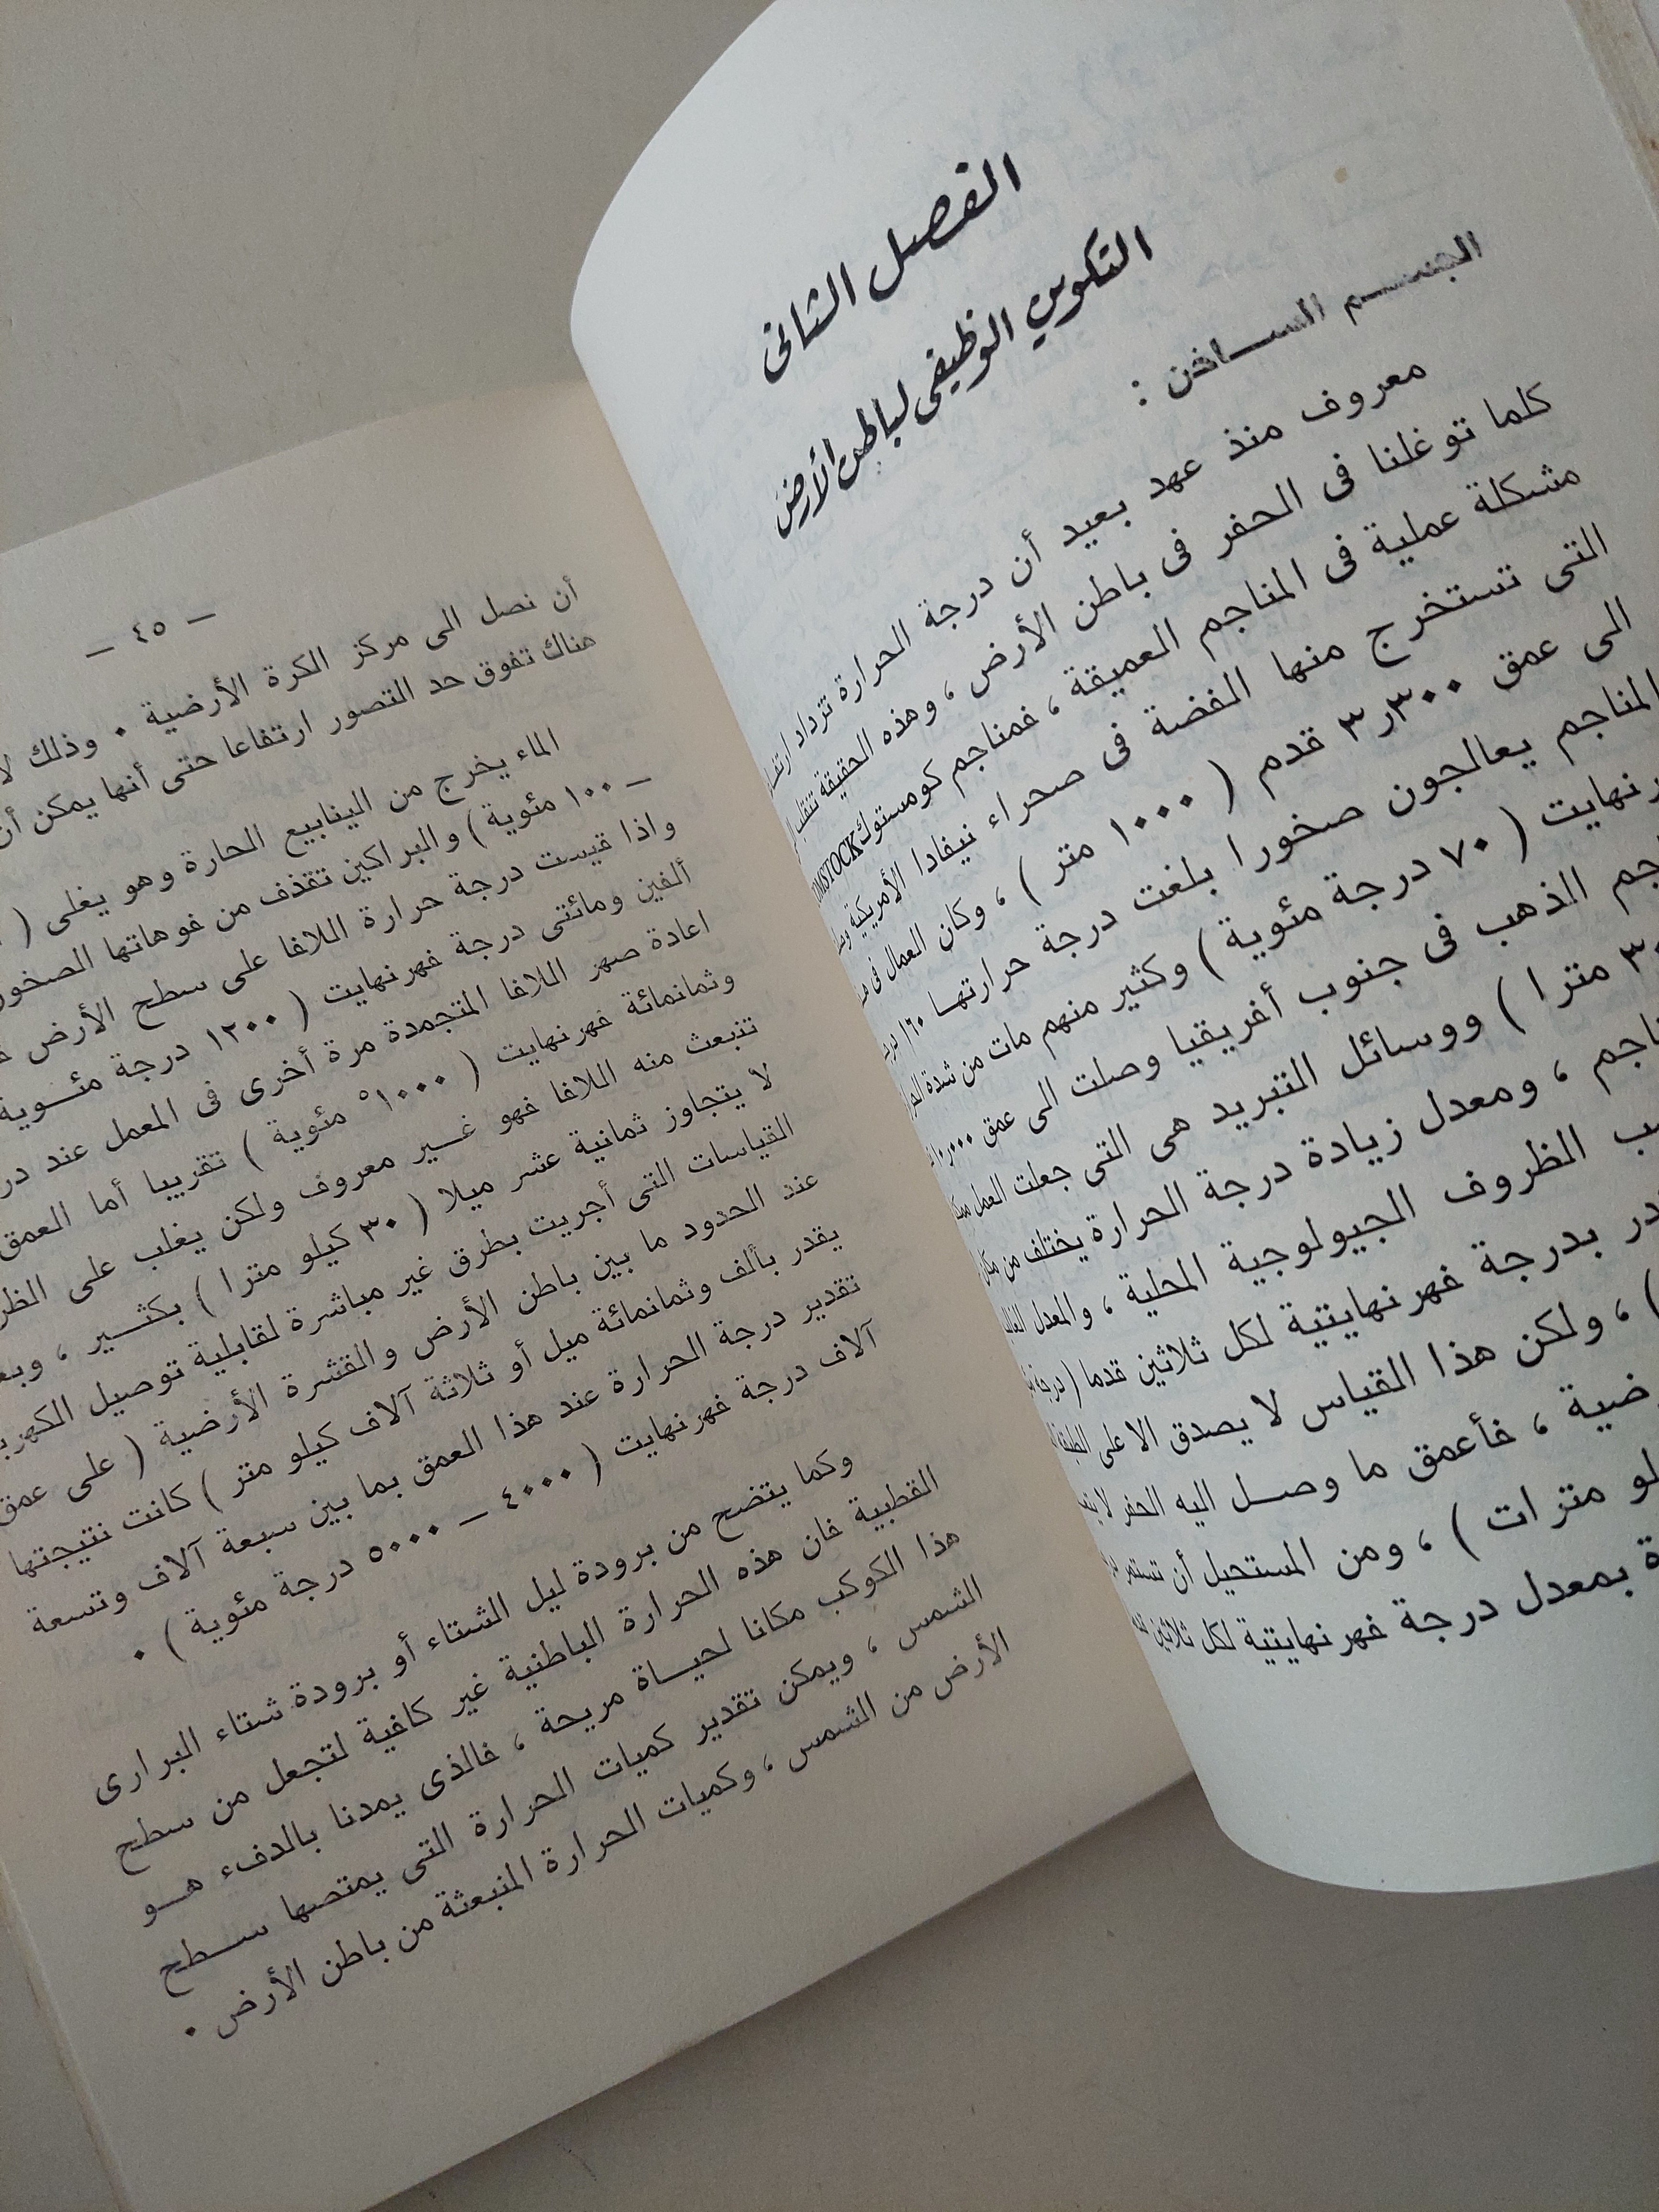 الفصل الثانى
التكوين الوظيفى لباطن الأرض
الجسم الساخن :
معروف منذ عهد بعيد أن درجة الحرارة تزداد
كلما توغلنا فى الحفر فى باطن الأرض ، وهذه الحقيقة
مشكلة عملية فى المناجم العميقة ، فمناجم كومستوك OMSTOCK
التى تستخرج منها الفضة فى صحراء نيفادا الأمريكية
الى عمق ٣٠٠ر٣ قدم ( ١٠٠٠ متر ) ، وكان العمال فى
المناجم يعالجون صخورا بلغت درجة حرارتها ١٦٠
رنهايت ( ٧٠ درجة مئوية ) وكثير منهم مات من شدة
جم الذهب فى جنوب أفريقيا وصلت الى عمق
مترا ) ووسائل التبريد هى التى جعلت العمل
اجم ، ومعدل زيادة درجة الحرارة يختلف من مكان
ب الظروف الجيولوجية المحلية ، والمعدل
در بدرجة فهرنهايتية لكل ثلاثين قدما ( درجة
) ، ولكن هذا القياس لا يصدق الا على
ضية ، فأعمق ما وصل اليه الحفر
لو مترات ) ، ومن المستحيل أن تستمر
ة بمعدل درجة فهرنهايتية لكل ثلاثين
— ٤٥ —
أن نصل الى مركز الكرة الأرضية . وذلك
هناك تفوق حد التصور ارتفاعا حتى أنها يمكن أن
الماء يخرج من الينابيع الحارة وهو يغلى (
— ١٠٠ مئوية ) والبراكين تقذف من فوهاتها الصخور
واذا قيست درجة حرارة اللافا على سطح الأرض
ألفين ومائتى درجة فهرنهايت ( ١٢٠٠ درجة مئوية
اعادة صهر اللافا المتجمدة مرة أخرى فى المعمل عند
وثمانمائة فهرنهايت ( ١٠٠٠° مئوية ) تقريبا أما العمق
تنبعث منه اللافا فهو غير معروف ولكن يغلب على
لا يتجاوز ثمانية عشر ميلا ( ٣٠ كيلو مترا ) بكثير ،
القياسات التى أجريت بطرق غير مباشرة لقابلية توصيل
عند الحدود ما بين باطن الأرض والقشرة الأرضية ( على عمق
يقدر بألف وثمانمائة ميل أو ثلاثة آلاف كيلو متر ) كانت نتيجتها
تقدير درجة الحرارة عند هذا العمق بما بين سبعة آلاف وتسعة
آلاف درجة فهرنهايت ( ٤٠٠٠ — ٥٠٠٠ درجة مئوية ) .
وكما يتضح من برودة ليل الشتاء أو برودة شتاء البرارى
القطبية فان هذه الحرارة الباطنية غير كافية لتجعل من سطح
هذا الكوكب مكانا لحياة مريحة ، فالذى يمدنا بالدفء هو
الشمس ، ويمكن تقدير كميات الحرارة التى يمتصها سطح
الأرض من الشمس ، وكميات الحرارة المنبعثة من باطن الأرض .